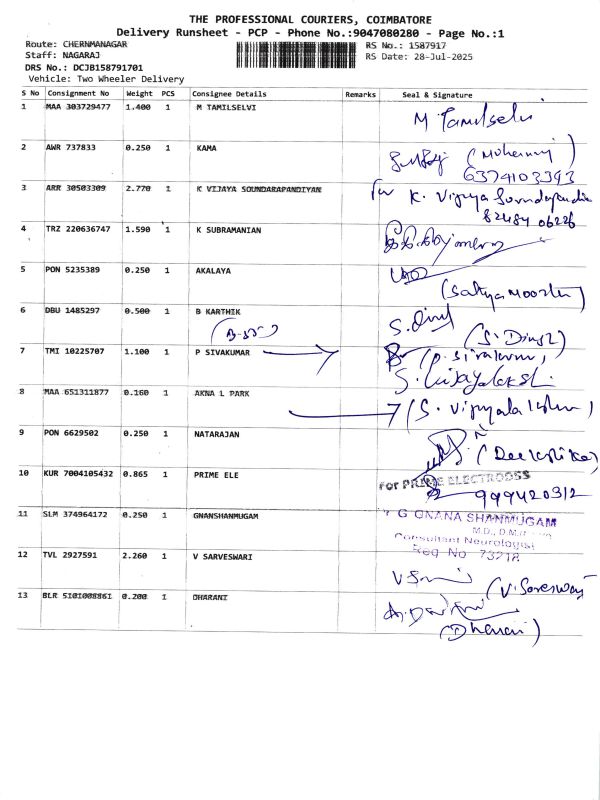 THE PROFESSIONAL COURIERS, COIMBATORE
Delivery Runsheet - PCP - Phone No.:9047080280 - Page No.:1
Route: CHERNMANAGAR
RS No.: 1587917
Staff: NAGARAJ
RS Date: 28-Jul-2025
DRS No.: DCJB158791701
Vehicle: Two Wheeler Delivery
S No Consignment No Weight PCS Consignee Details Remarks Seal & Signature
1 MAA 303729477 1.400 1 M TAMILSELVI M Tamilselvi
2 AWR 737833 0.250 1 KAMA
6374103393
3 ARR 30503309 2.770 1 K VIJAYA SOUNDARAPANDIYAN for K. Vijaya Soundapandia
82484 06226
4 TRZ 220636747 1.590 1 K SUBRAMANIAN
5 PON 5235389 0.250 1 AKALAYA
(Sathya Moorthy)
6 DBU 1485297 0.500 1 B KARTHIK
7 TMI 10225707 1.100 1 P SIVAKUMAR (P. Sivakumar,
S. Vijayalakshi
8 MAA 651311877 0.160 1 AKNA L PARK
(S. Vijayalakshmi)
9 PON 6629502 0.250 1 NATARAJAN (Deekshika)
10 KUR 7004105432 0.865 1 PRIME ELE for PRIME ELECTRODSS
11 SLM 374964172 0.250 1 GNANSHANMUGAM G GNANA SHANMUGAM
M.D., D.M.
Consultant Neurologist
Reg No 73218
12 TVL 2927591 2.260 1 V SARVESWARI
(V. Sareswary
13 BLR 5101008861 0.200 1 DHARANI
(Dharani)